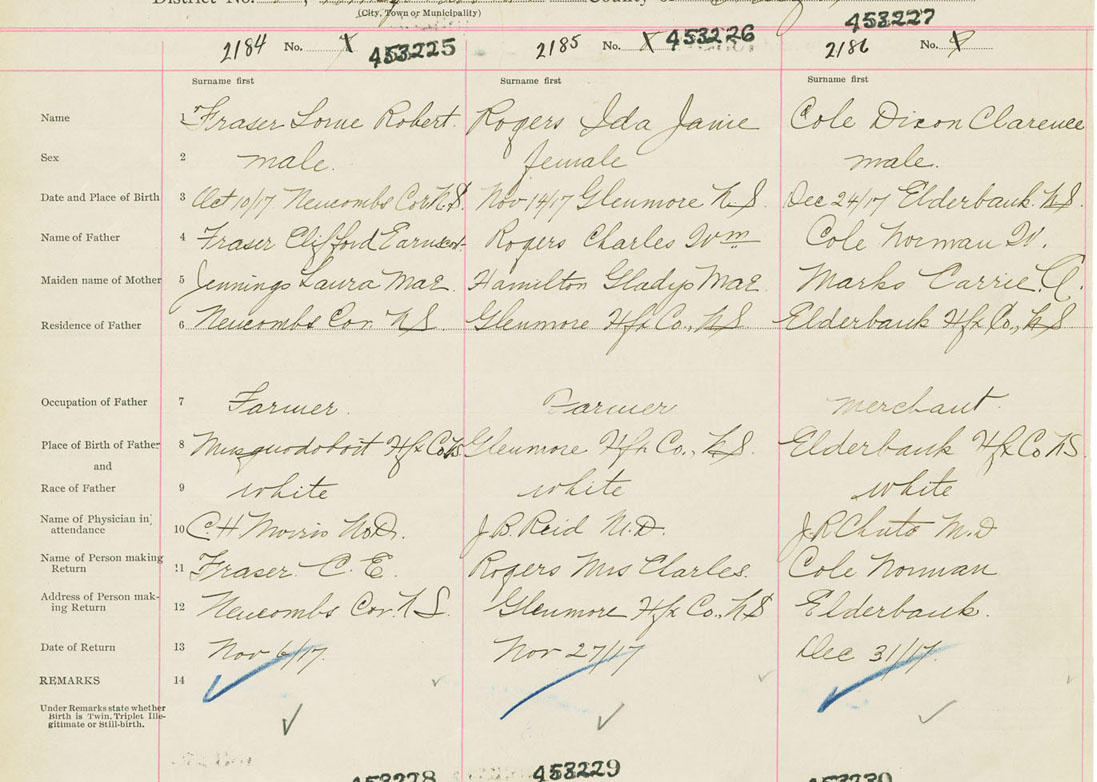 District No. County of
(City, Town or Municipality)
2184 No. X 453225 2185 No. X 453226 2186 No. X 453227
Surname first Surname first Surname first
Name 1 Fraser Lorne Robert. Rogers Ida Janie Cole Dixon Clarence
Sex 2 male. female male.
Date and Place of Birth 3 Oct 10/17 Newcombs Cor N.S. Nov 14/17 Glenmore N.S. Dec 24/17 Elderbank. N.S.
Name of Father 4 Fraser Clifford Rogers Charles Wm Cole Norman W.
Maiden name of Mother 5 Jennings Laura Mae Hamilton Gladys Mae Marks Carrie
Residence of Father 6 Newcombs Cor. N S Glenmore Hfx Co., N S Elderbank Hfx Co., N S
Occupation of Father 7 Farmer. Farmer merchant.
Place of Birth of Father 8 Musquodoboit Hfx Co NS Glenmore Hfx Co., N S. Elderbank Hfx Co N.S.
and
Race of Father 9 white white white
Name of Physician in attendance 10 C. H Morris M.D. J. B. Reid M.D. J R Chute M.D
Name of Person making Return 11 Fraser. C. E. Rogers Mrs Charles. Cole Norman
Address of Person making Return 12 Newcombs Cor. N S. Glenmore Hfx Co., N S Elderbank.
Date of Return 13 Nov 6/17. Nov 27/17 Dec 31/17.
REMARKS 14
Under Remarks state whether
Birth is Twin, Triplet Ille-
gitimate or Still-birth.
453228 453229 453230